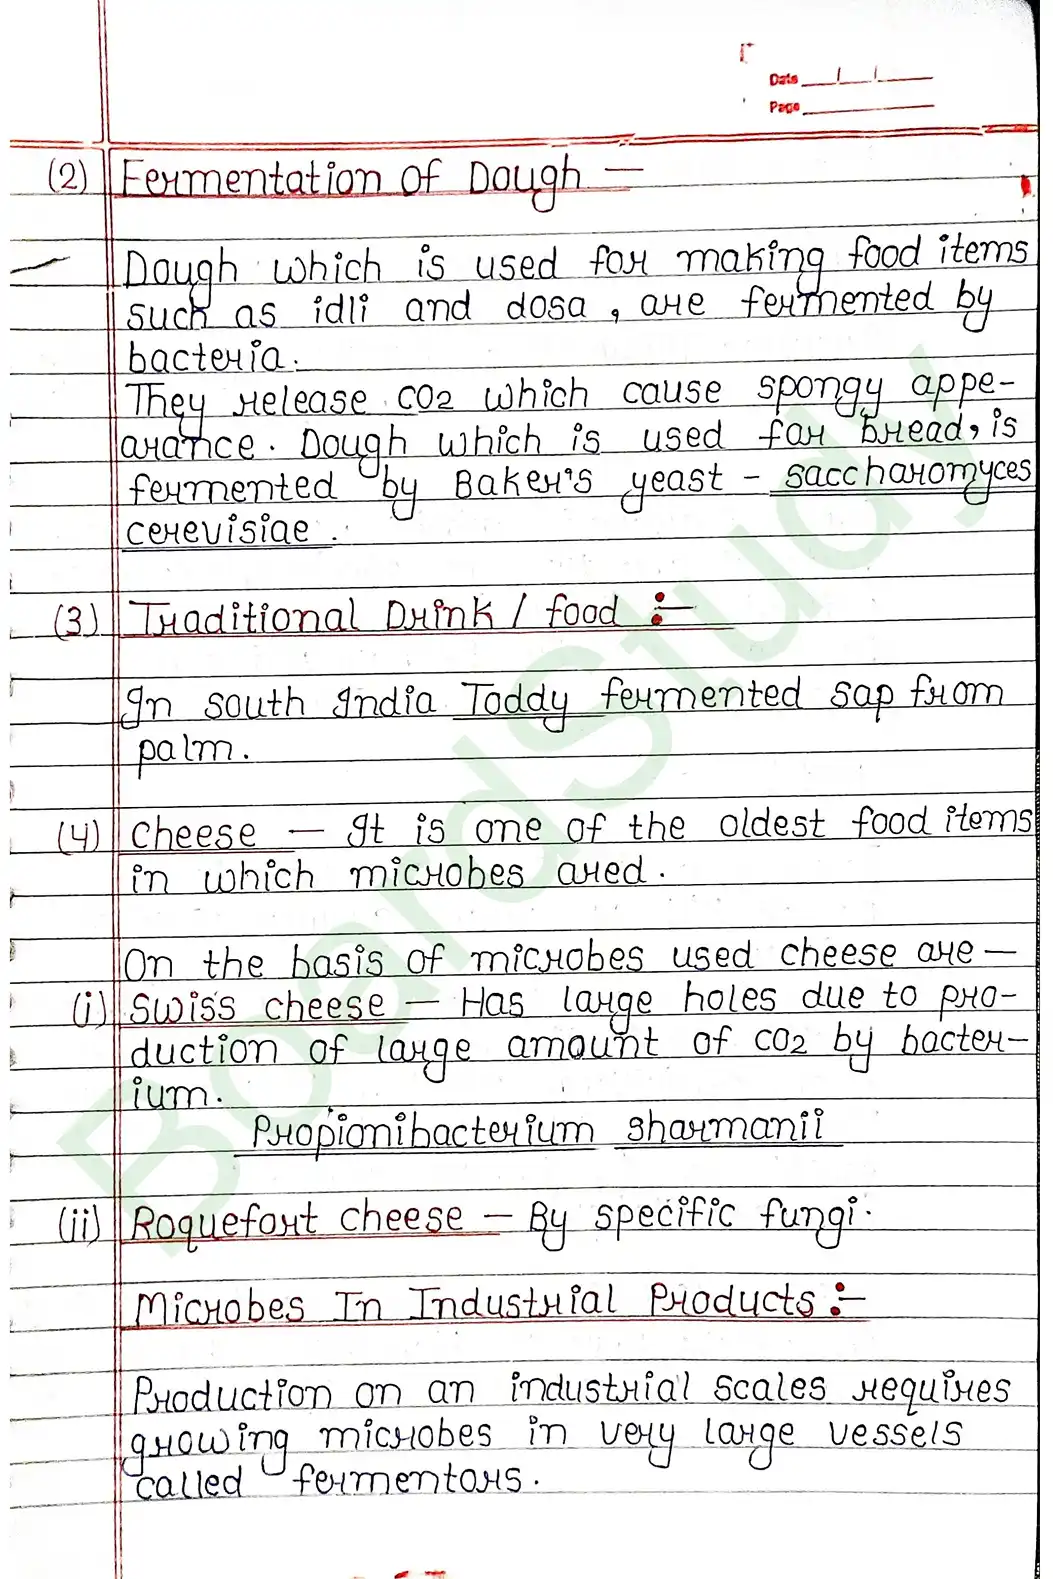 Date
Page
(2) Fermentation of Dough —
Dough which is used for making food items
such as idli and dosa, are fermented by
bacteria.
They release CO2 which cause spongy appe-
arance. Dough which is used for bread, is
fermented by Baker's yeast - saccharomyces
cerevisiae.
(3) Traditional Drink / food :-
In south India Toddy fermented sap from
palm.
(4) Cheese — It is one of the oldest food items
in which microbes ared.
On the basis of microbes used cheese are —
(i) Swiss cheese — Has large holes due to pro-
duction of large amount of CO2 by bacter-
ium.
Propionibacterium sharmanii
(ii) Roquefort cheese — By specific fungi.
Microbes In Industrial Products :-
Production on an industrial scales requires
growing microbes in very large vessels
called fermentors.
BoardStudy